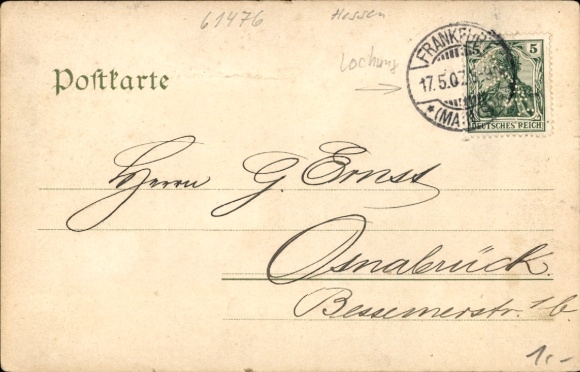 61476
Hessen
Lochung
Postkarte
FRANKFURT
17.5.07.
*(MAIN)
5
DEUTSCHES REICH
Herrn G. Ernst
Osnabrück.
Bessemerstr. 1b.
1.-